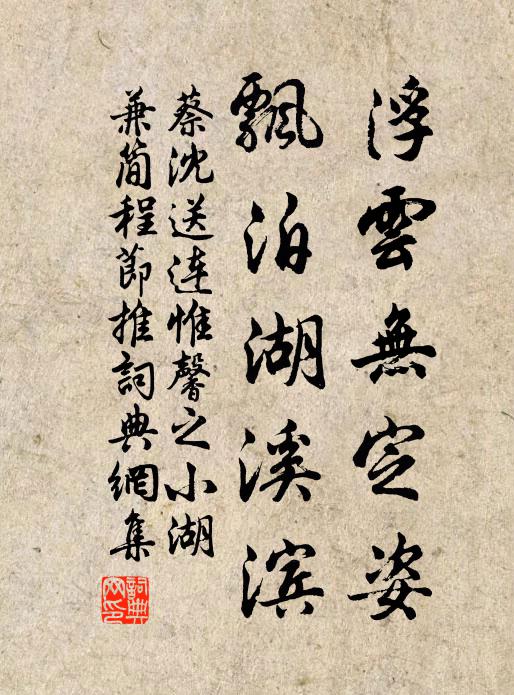 浮雲無定姿
飄泊湖溪滨
蔡沈送连惟馨之小湖
兼简程節推詞典網集
詞典网印